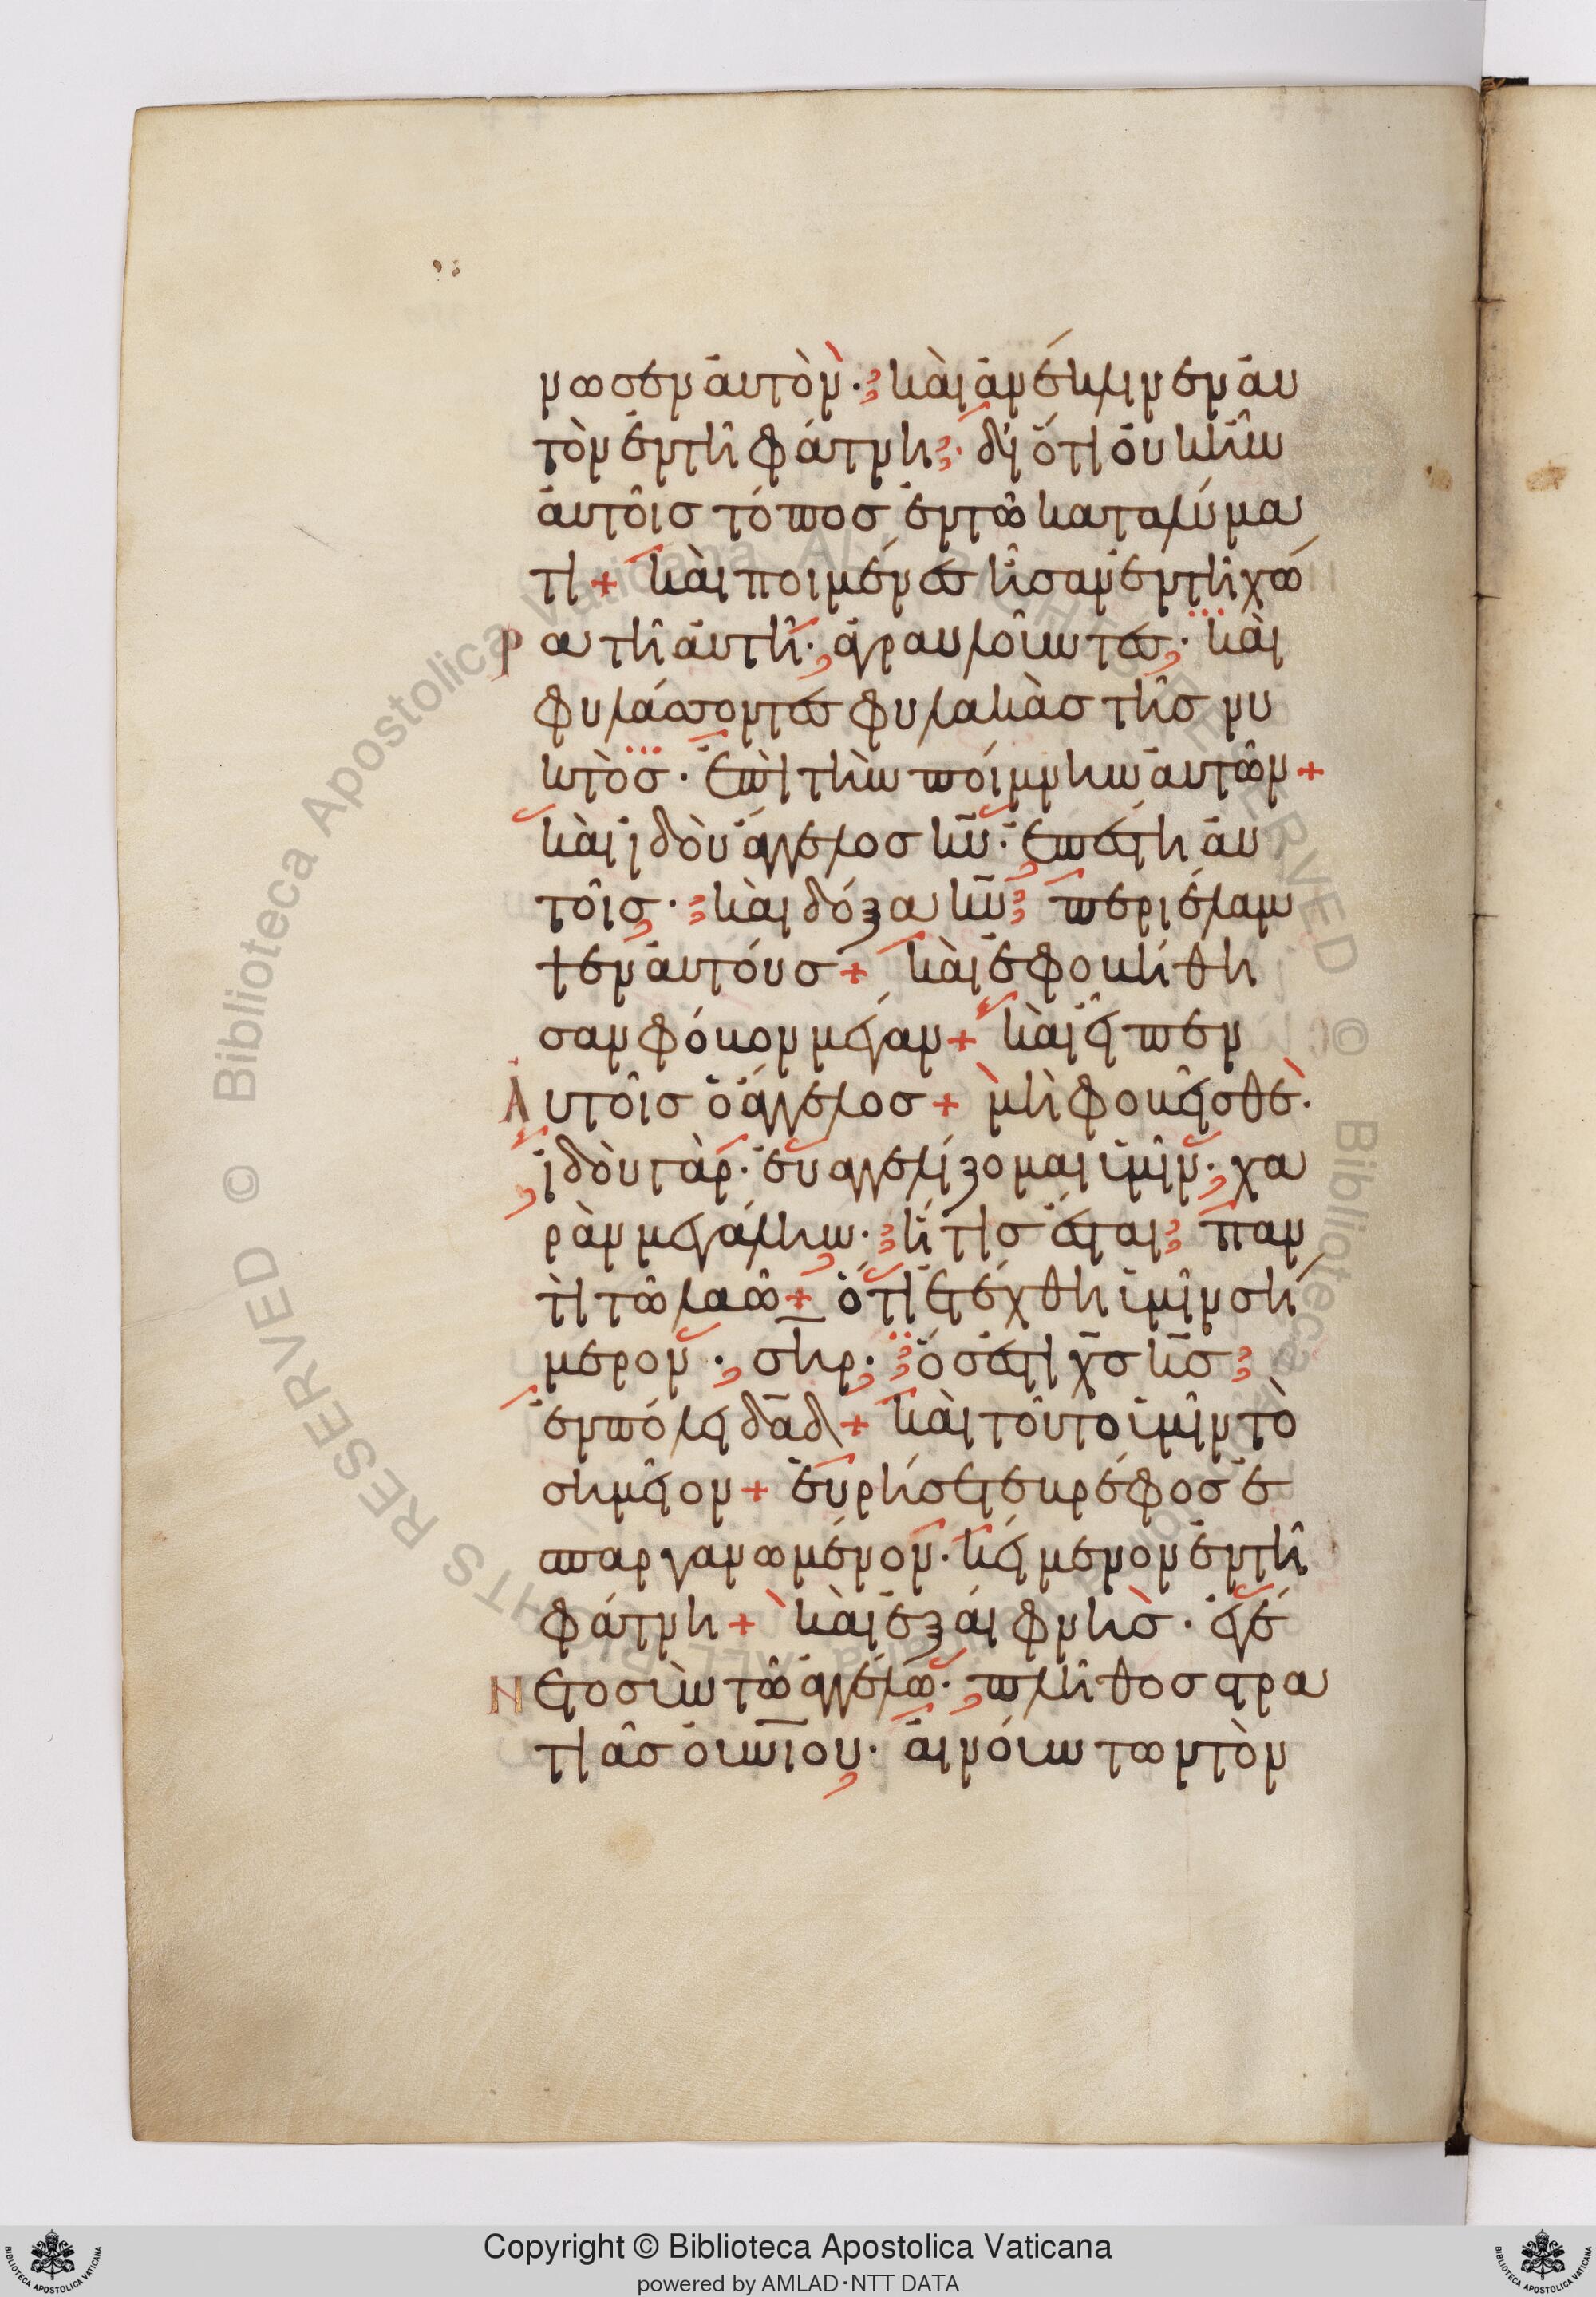 νωσεν ἀυτὸν· κὰι ἀνέκλινεν ἀυ
τὸν ἐντῆ φάτνη· δι ὅτι ὀυκ ἦν
ἀυτοῖσ τόποσ ἐντῶ καταλύμα
τι + κὰι ποιμένεσ ἦσαν ἐντῆ χώ
ρα τῆ ἀυτῆ· ἀγραυλοῦντεσ· κὰι
φυλάσσοντεσ φυλακὰσ τῆσ νυ
κτὸσ· ἐπὶ τὴν ποίμνην ἀυτῶν +
κὰι ἰδοὺ ἄγγελοσ κ̅υ̅· ἐπέστη ἀυ
τοῖσ· κὰι δόξα κ̅υ̅ περιέλαμ
ψεν ἀυτόυσ + κὰι ἐφοβήθη
σαν φόβον μέγαν + κὰι εἶπεν
Αυτοῖσ ὁ ἄγγελοσ + μὴ φοβεῖσθὲ·
ἰδοὺ γὰρ· ἐυαγγελίζομαι ὑμῖν· χα
ρὰν μεγάλην· ἥτισ ἔσται παν
τὶ τῶ λαῶ + ὅτι ἐτέχθη ὑμῖν σή
μερον· σ̅η̅ρ̅· ὅσ ἐστι χ̅σ̅ κ̅σ̅
ἐν πόλει δ̅α̅δ̅ + κὰι τοῦτο ὑμῖν τὸ
σημεῖον + ἑυρήσετε βρέφοσ ἐ
σπαργανωμένον· κείμενον ἐντῆ
φάτνη + κὰι ἐξάιφνησ· ἐγέ
Νετο σὺν τῶ ἀγγέλω· πλῆθοσ στρα
τιᾶσ ὀυ̅ν̅ίου· ἀινόυντων τὸν
Copyright © Biblioteca Apostolica Vaticana
powered by AMLAD·NTT DATA